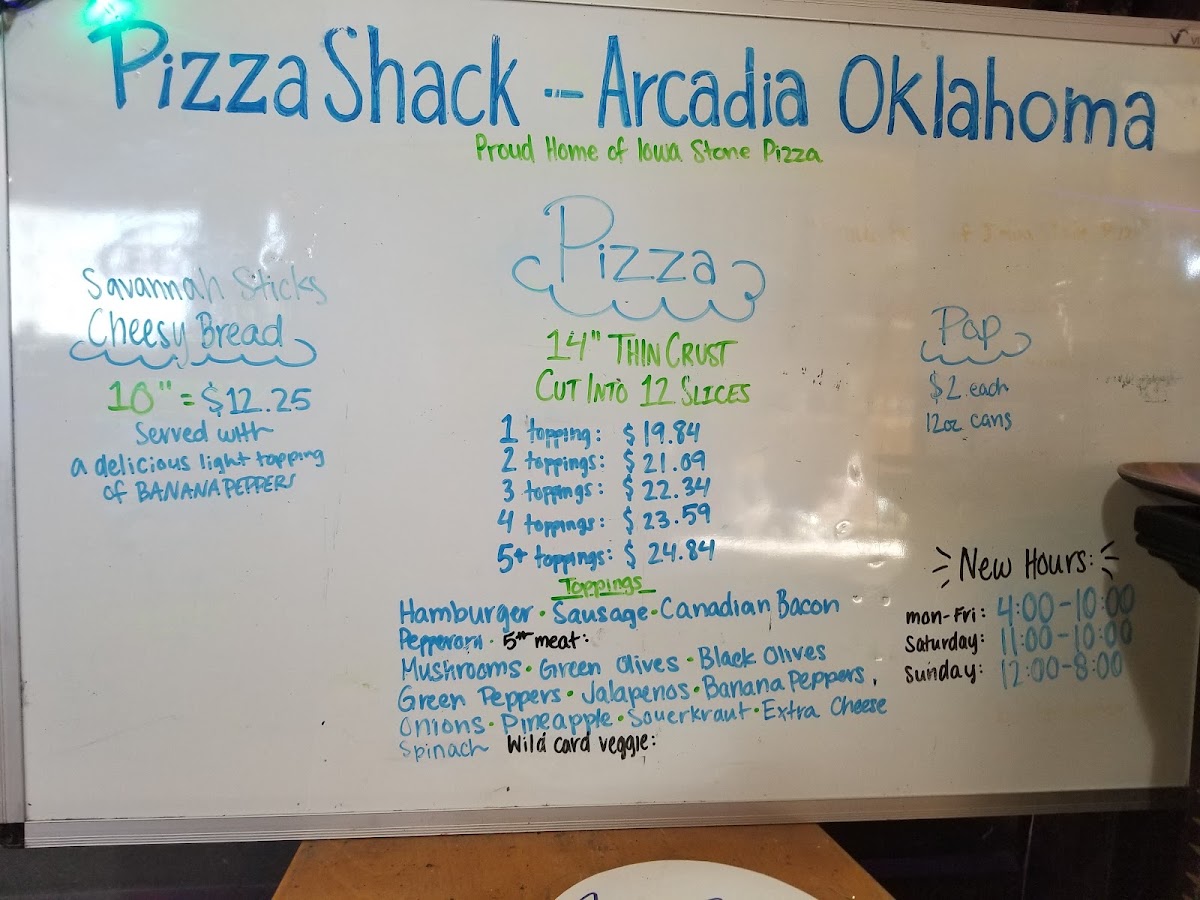 Pizza Shack -- Arcadia Oklahoma
Proud Home of Iowa Stone Pizza
Savannah Sticks
Cheesy Bread
10" = $12.25
Served with
a delicious light topping
of BANANA PEPPERS
Pizza
14" THIN CRUST
CUT INTO 12 SLICES
1 topping: $19.84
2 toppings: $21.09
3 toppings: $22.34
4 toppings: $23.59
5+ toppings: $24.84
Toppings
Hamburger · Sausage · Canadian Bacon
Pepperoni · 5th meat:
Mushrooms · Green Olives · Black Olives
Green Peppers · Jalapenos · Banana Peppers,
Onions · Pineapple · Souerkraut · Extra Cheese
Spinach Wild card veggie:
Pop
$2 each
12oz cans
New Hours:
mon-Fri: 4:00-10:00
Saturday: 11:00-10:00
Sunday: 12:00-8:00